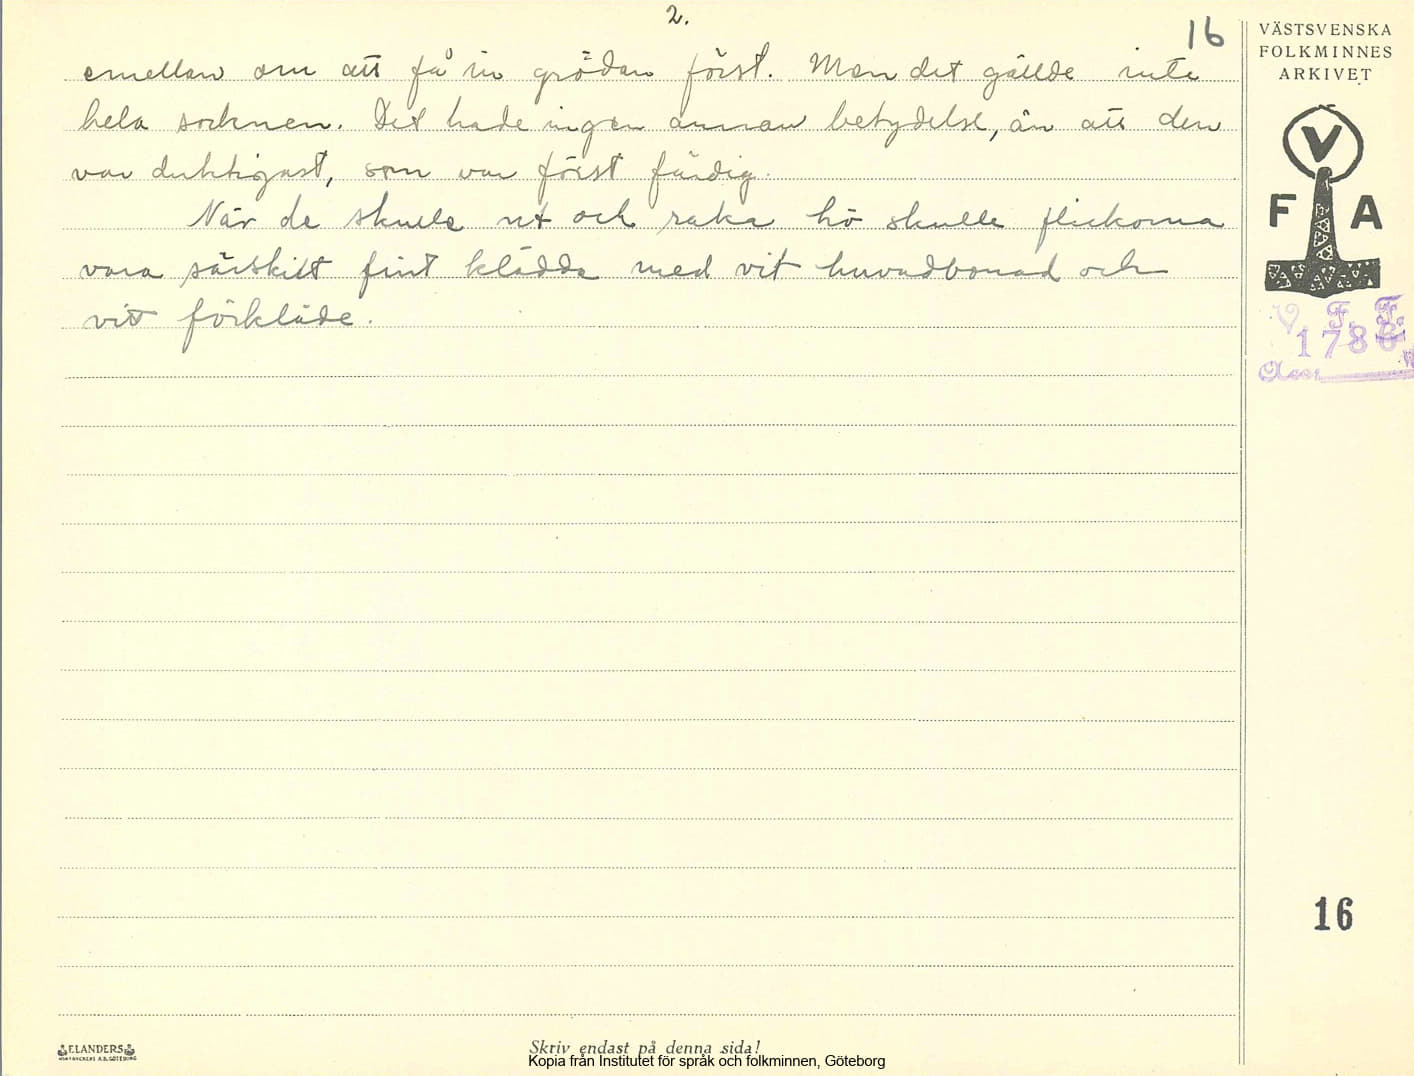 2.
16
emellan om att få in grödan först. Men det gällde inte
hela socknen. Det hade ingen annan betydelse, än att den
var duktigast, som var först färdig.
När de skulle ut och raka hö skulle flickorna
vara särskilt fint klädda med vit huvudbonad och
vitt förkläde.
VÄSTSVENSKA
FOLKMINNES
ARKIVET
V
F A
V. F. F.
1786
Acc.
16
ELANDERS
Skriv endast på denna sida!
Kopia från Institutet för språk och folkminnen, Göteborg